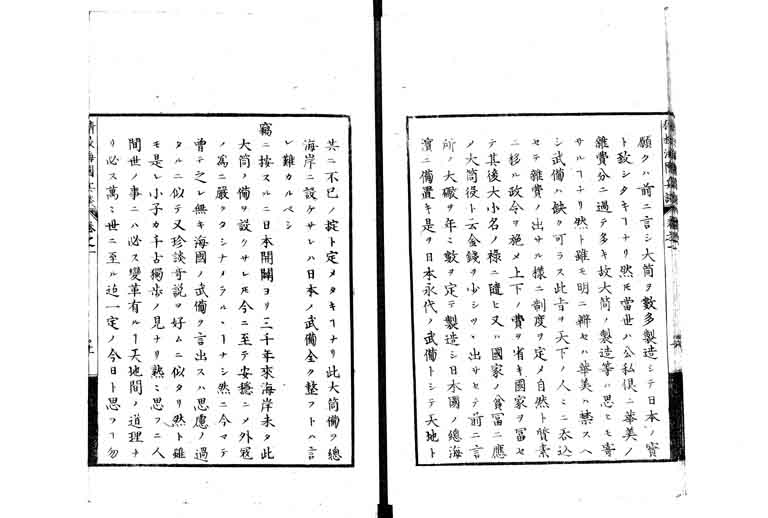 願クハ前ニ言シ大筒ヲ數多製造シテ日本ノ寳
ト致シタキヿナリ然モ當世ハ公私俱ニ華美ノ
雜費分ニ過テ多キ故大筒ノ製造等ハ思ヒモ寄
サルヿナリ然ト雖モ明ニ辯セハ華美ハ禁スヘ
シ武備ハ缺ク可ラス此旨ヲ天下ノ人ミニ呑込
セテ雜費ノ出サル樣ニ制度ヲ定メ自然ト質素
ニ移ル政令ヲ施メ上下ノ費ヲ省キ國家ヲ冨セ
テ其後大小名ノ祿ニ隨ヒ又ハ國家ノ貧冨ニ應
ノ大筒役ト云金錢ヲ少シツヽ出サセテ前ニ言
所ノ大礮ヲ年ミ數ヲ定テ製造シ日本國ノ總海
濱ニ備置キ是ヲ日本永代ノ武備トシテ天地ト
共ニ不已ノ掟ト定メタキヿナリ此大筒備ヲ總
海岸ニ設ケサレハ日本ノ武備全ク整フトハ言
レ難カルヘシ
竊ニ按スルニ日本開闢ヨリ三千年來海岸未タ此
大筒ノ備ヲ設クサレモ今ニ至テ安穩ニノ外冦
ノ爲ニ嚴ヲタシナメラルヽヿナシ然ニ今マテ
曾テ之レ無キ海國ノ武備ヲ言出スハ思慮ノ過
タルニ似テ又珍談奇説ヲ好ムニ似タリ然ト雖
モ是レ小子カ千古獨歩ノ見ナリ熟ミ思フニ人
間世ノ事ニハ必ス變革有ルヿ天地間ノ道理ナ
リ必ス萬ミ世ニ至ル迠一定ノ今日ト思フヿ勿
卷之一